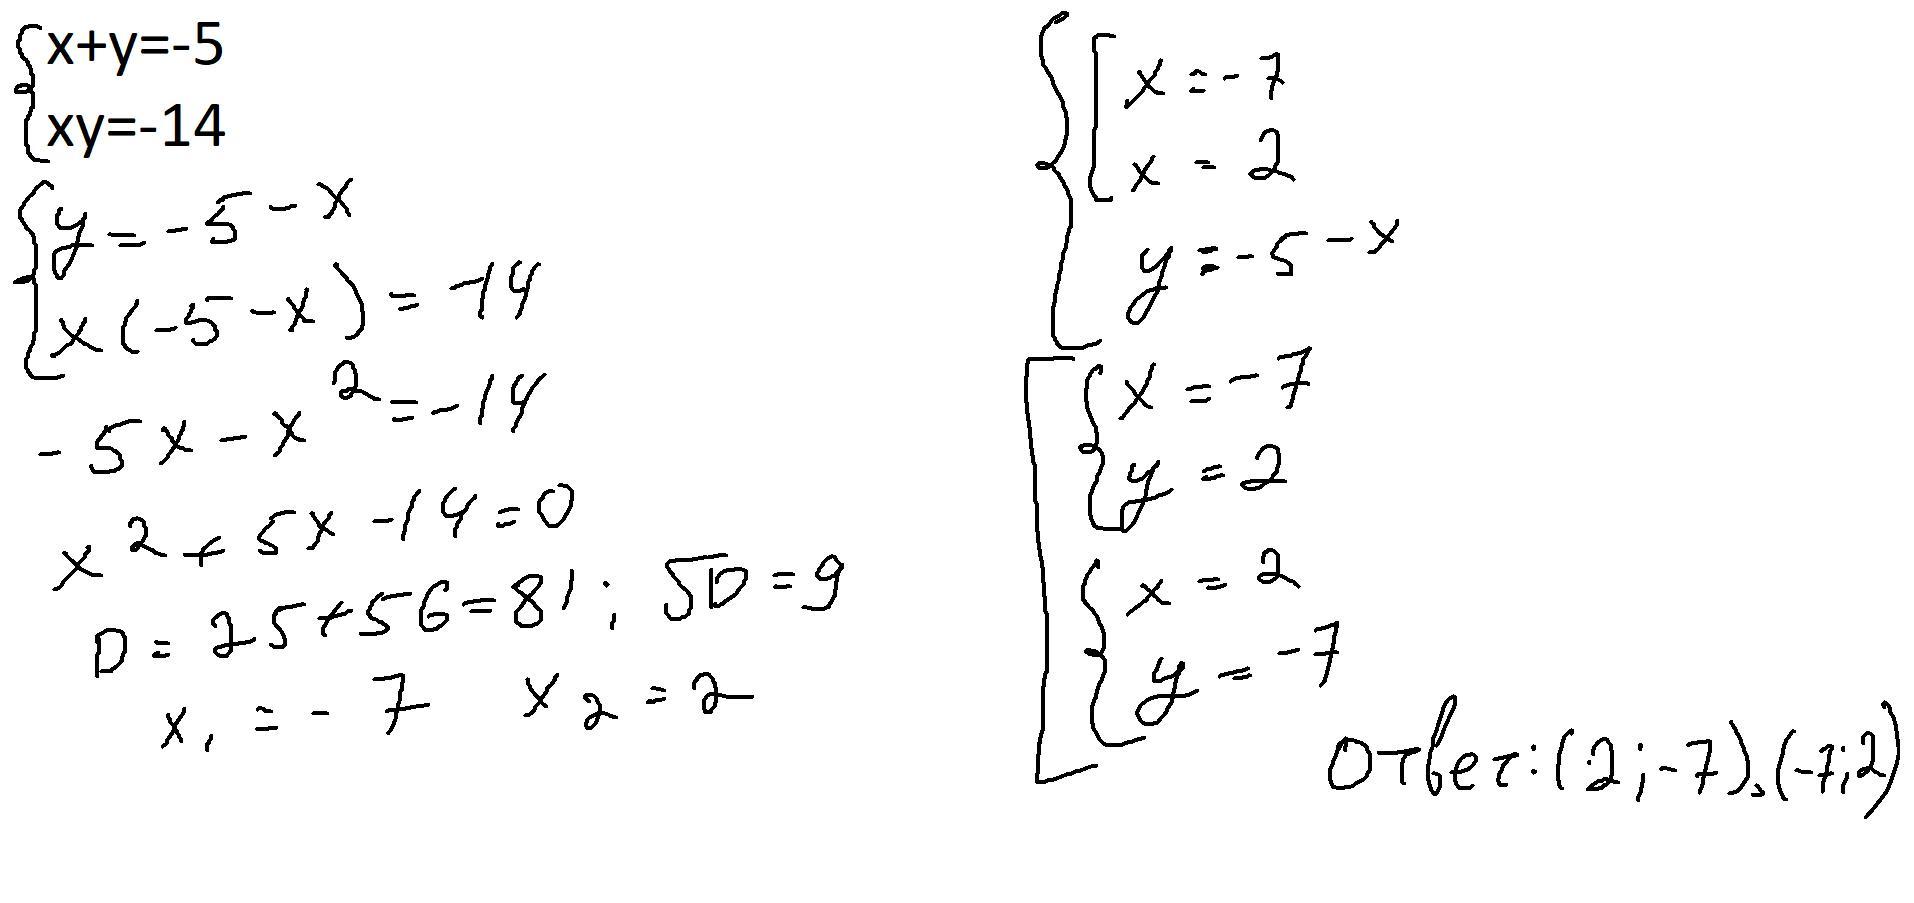 x+y=-5
xy=-14
y = -5 - x
x(-5-x) = -14
-5x - x² = -14
x² + 5x - 14 = 0
D = 25 + 56 = 81 ; √D = 9
x₁ = -7 x₂ = 2
x = -7
x = 2
y = -5 - x
x = -7
y = 2
x = 2
y = -7
Ответ: (2; -7), (-7; 2)